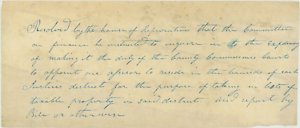 Resolved by the house of Representatives that the Committee
on finance be instructed to inquire in to the expediency
of making it the duty of the County Commissioners Court
to appoint one officer to reside in the bounds of each
Justices district for the purpose of taking in lists of
taxable property in said district and report by
Bill or otherwise